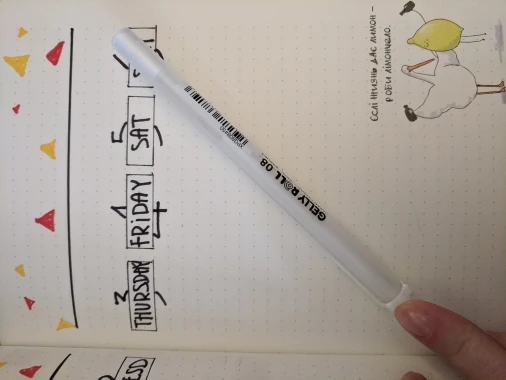 ЄСЛІ ЖИЗНЬ ДАЄ ЛИМОН –
РОБИ ЛІМОНЧЕЛО.
GELLY ROLL 08
3
THURSDAY
4
FRIDAY
5
SAT
ESD